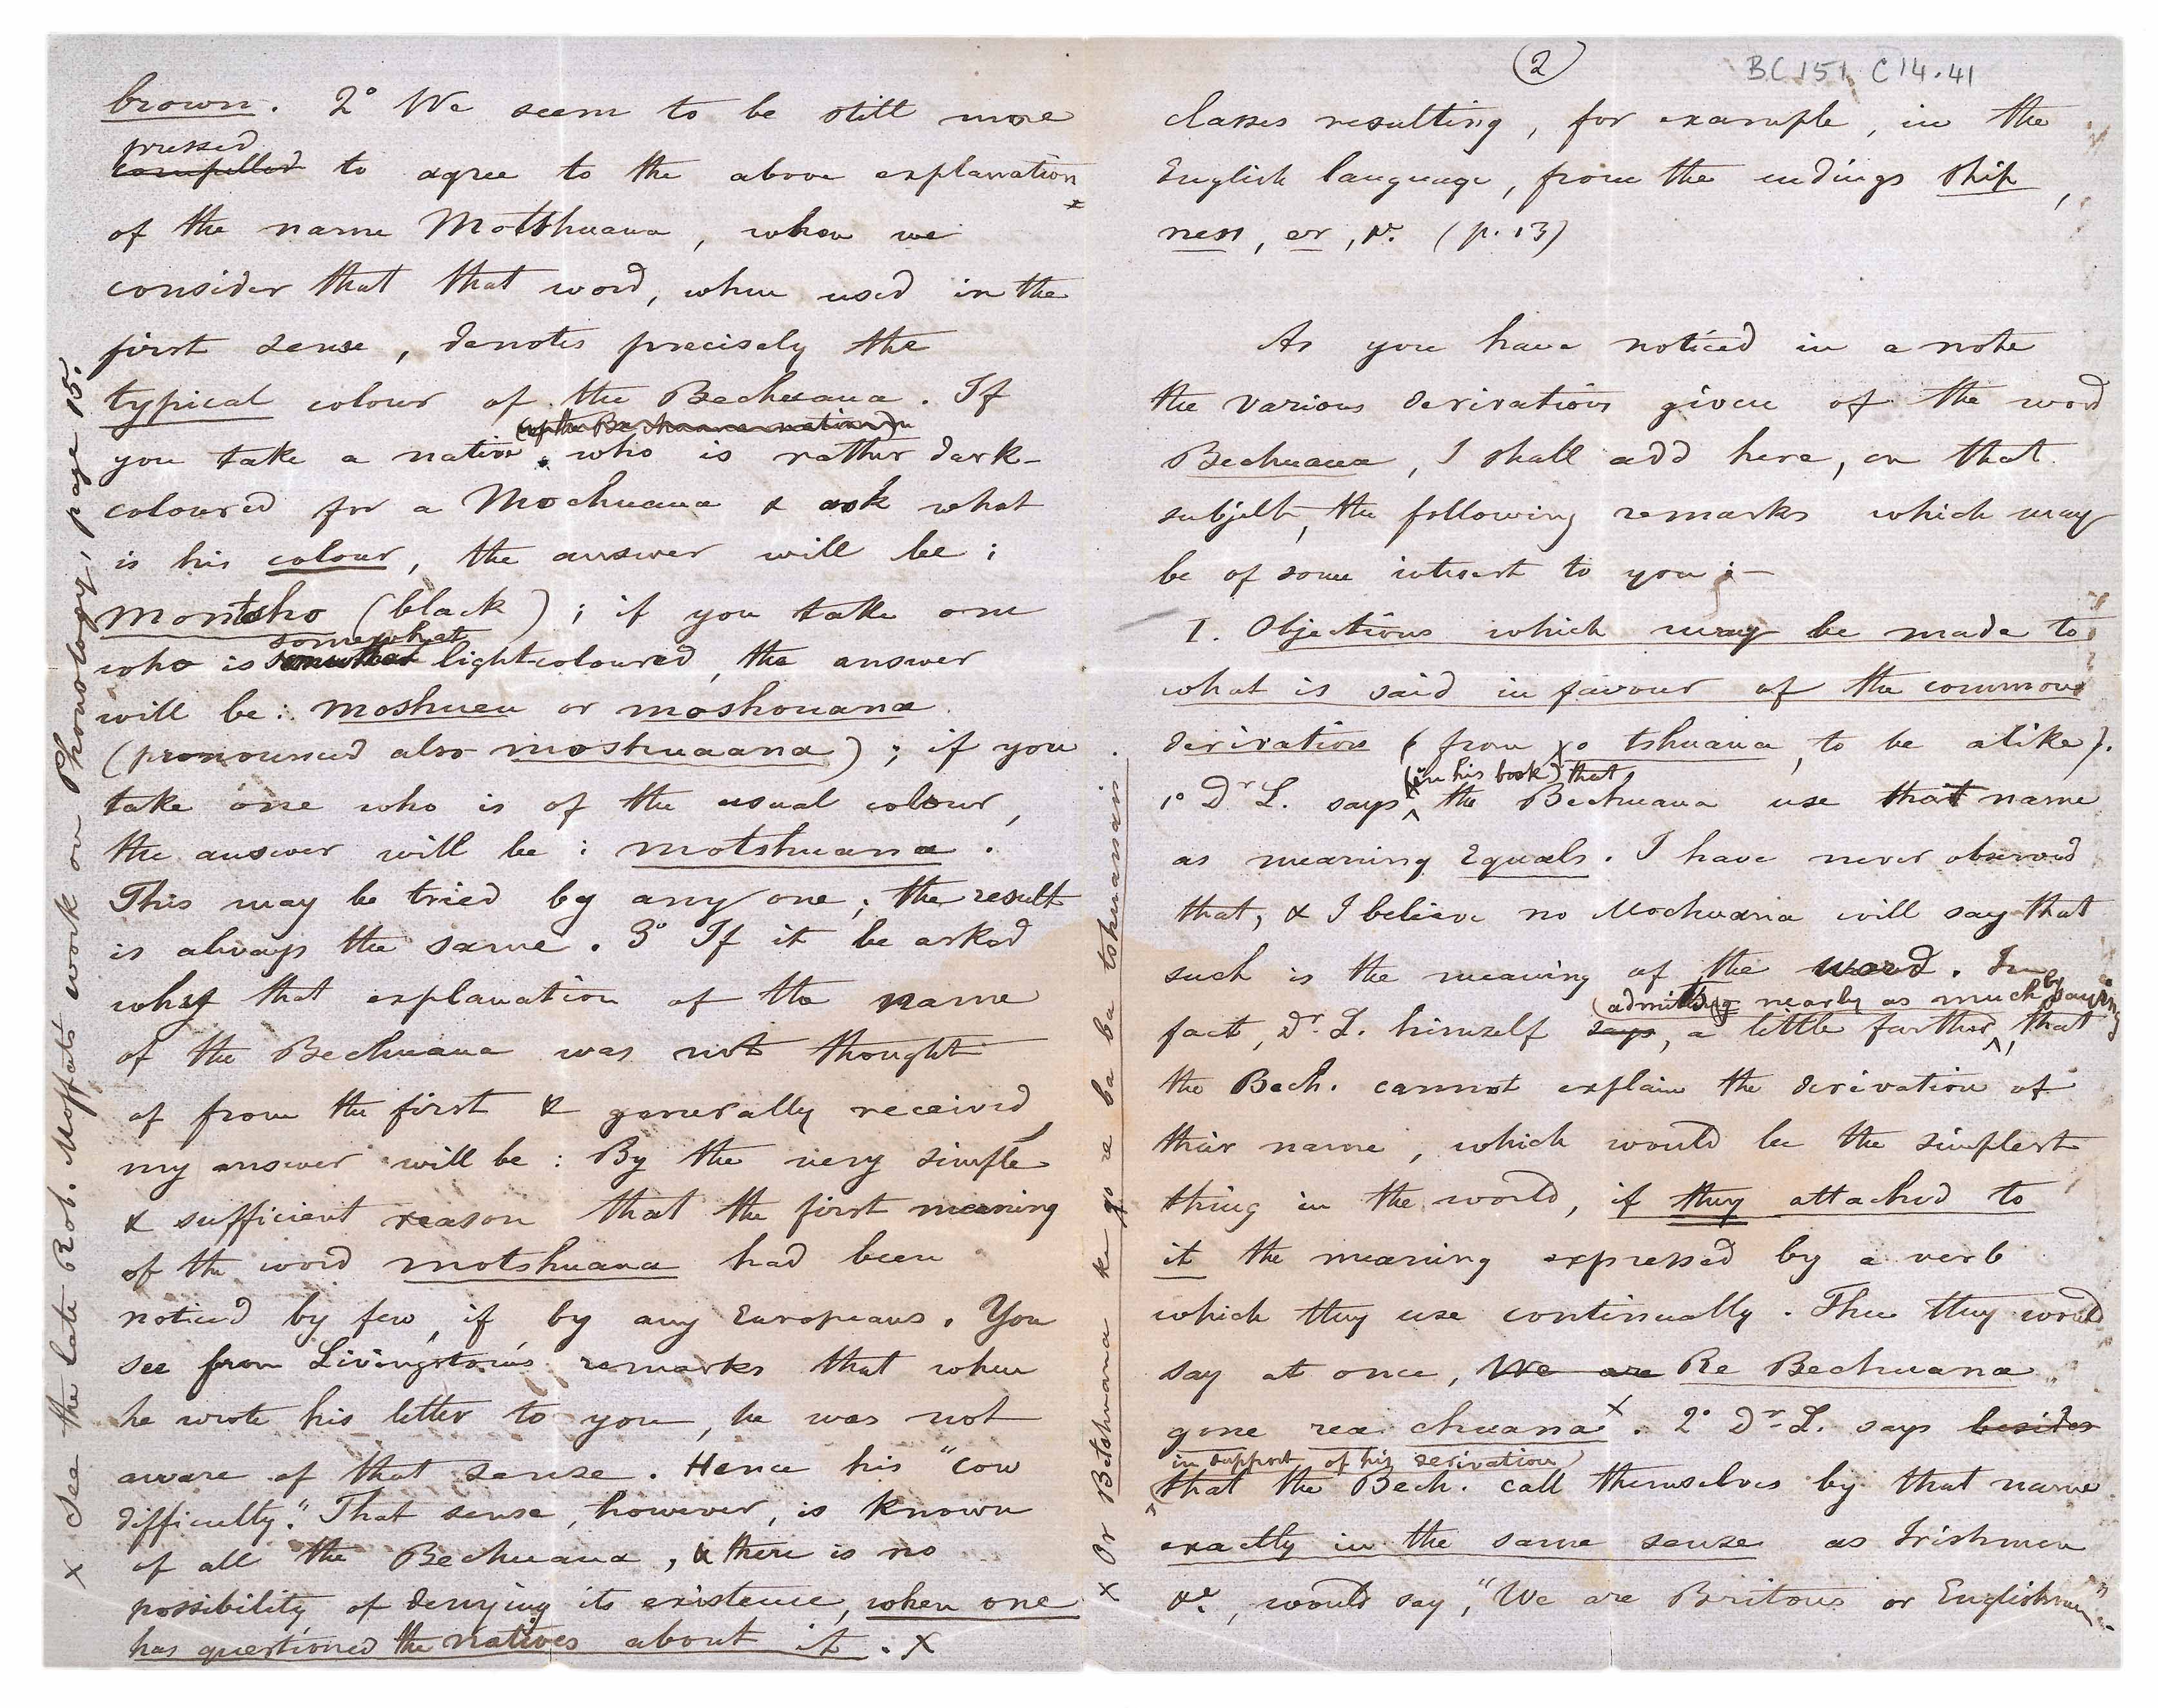 brown. 2° We seem to be still more
pressed
compelled to agree to the above explanation
of the name Motshuana, when we
consider that that word, when used in the
first sense, denotes precisely the
typical colour of the Bechuana. If
(of the Bechuana nation)
you take a native who is rather dark-
coloured for a Mochuana & ask what
is his colour, the answer will be:
montsho (black); if you take one
somewhat
who is light-coloured, the answer
will be: moshueu or moshouana
(pronounced also moshuaana); if you
take one who is of the usual colour,
the answer will be: motshuana.
This may be tried by any one; the result
is always the same. 3° If it be asked
why that explanation of the name
of the Bechuana was not thought
of from the first & generally received
my answer will be: By the very simple
& sufficient reason that the first meaning
of the word motshuana had been
noticed by few, if by any Europeans. You
see from Livingstone's remarks that when
he wrote his letter to you, he was not
aware of that sense. Hence his "cow
difficulty." That sense, however, is known
of all the Bechuana, & there is no
possibility of denying its existence, when one
has questioned the natives about it. x
x See the late Rob. Moffat's work on Phonology, page 15.
2
BC 151 C14.41
classes resulting, for example, in the
English language, from the endings ship,
ness, er, &c. (p. 13)
As you have noticed in a note
the various derivations given of the word
Bechuana, I shall add here, on that
subject, the following remarks which may
be of some interest to you:—
I. Objections which may be made to
what is said in favour of the common
derivation (from go tshuana, to be alike).
(in his book) that
1° Dr L. says the Bechuana use that name
as meaning Equals. I have never observed
that, & I believe no Mochuana will say that
such is the meaning of the word. In
admitting nearly as much by saying
fact, Dr. L. himself says, a little farther, that
the Bech. cannot explain the derivation of
their name, which would be the simplest
thing in the world, if they attached to
it the meaning expressed by a verb
which they use continually. Then they would
say at once, We are Re Bechuana
gone rea chuana x. 2° Dr L. says besides
in support of his derivation
that the Bech. call themselves by that name
exactly in the same sense as Irishmen
&c., would say, "We are Britons or Englishmen".
x Or Betshuana ke go re ba ba tshuanain.